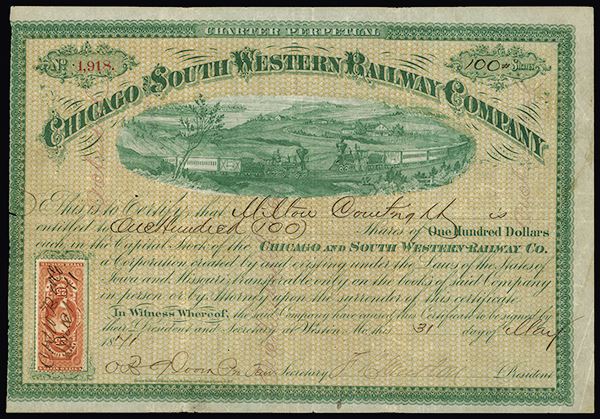 CHARTER PERPETUAL
No. 1,918.
100 Shares
CHICAGO AND SOUTH WESTERN RAILWAY COMPANY
This is to Certify, that Milton Courtright is
entitled to One Hundred (100) Shares of One Hundred Dollars
each in the Capital Stock of the CHICAGO AND SOUTH WESTERN RAILWAY CO.
a Corporation created by and existing under the Laws of the States of
Iowa and Missouri, transferable only on the books of said Company
in person or by Attorney upon the surrender of this certificate
In Witness Whereof, the said Company have caused this Certificate to be signed by
their President and Secretary at Weston Mo. this 31 day of May
1871
Secretary President